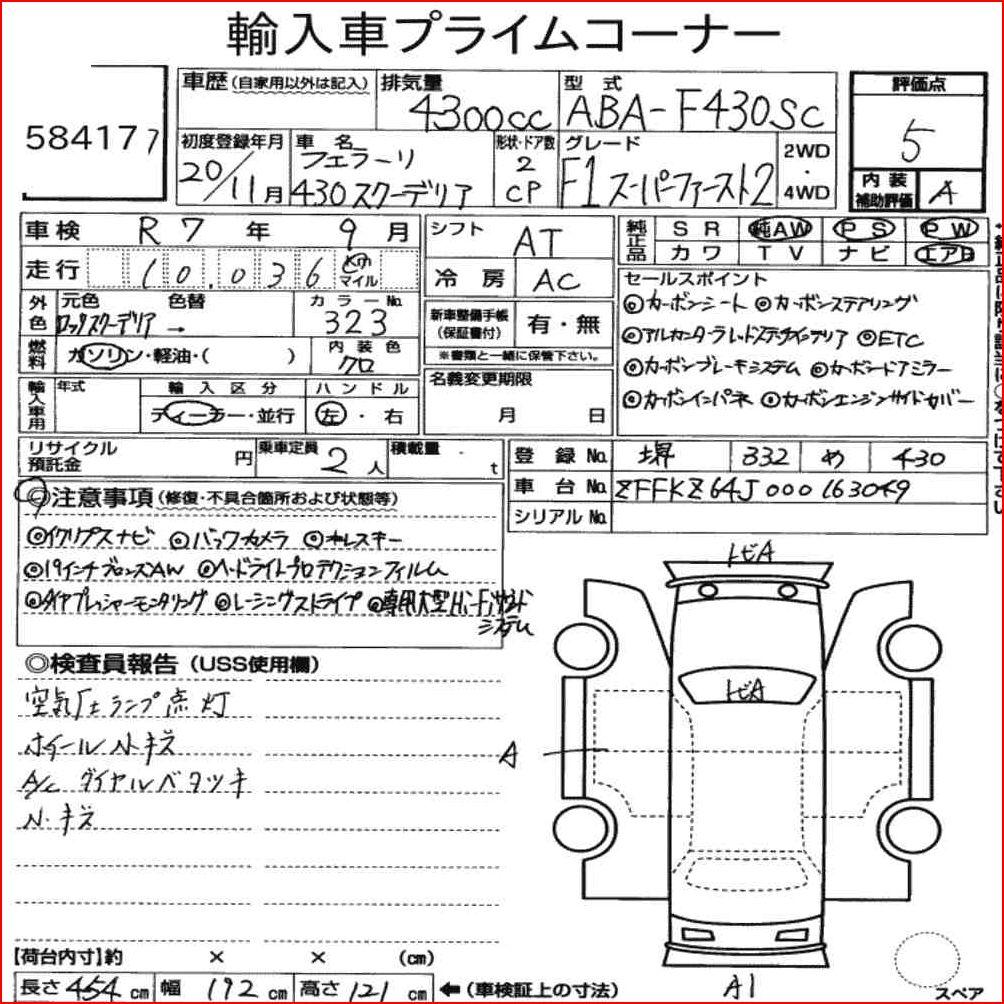 輸入車プライムコーナー
584177
車歴 (自家用以外は記入)
排気量 4300cc
型式 ABA-F430SC
評価点 5
内装補助評価 A
初度登録年月 20/11月
車名 フェラーリ 430スクーデリア
形状・ドア数 2 CP
グレード F1 スーパーファースト2
2WD・4WD
車検 R7年 9月
走行 10.036 Km マイル
シフト AT
冷房 AC
純正品 SR 純AW PS PW
カワ TV ナビ エアB
外色 元色 色替 カラーNo.
ロッソスクーデリア → 323
燃料 ガソリン・軽油・( )
内装色 クロ
新車整備手帳(保証書付) 有・無
※書類と一緒に保管下さい。
輸入車用 年式 輸入区分 ハンドル
ディーラー・並行 左・右
名義変更期限 月 日
セールスポイント
◎カーボンシート ◎カーボンステアリング
◎アルカンターラレッドステッチインテリア ◎ETC
◎カーボンブレーキシステム ◎カーボンドアミラー
◎カーボンインパネ ◎カーボンエンジンサイドカバー
リサイクル預託金 円
乗車定員 2人
積載量 t
登録No. 堺 332 め 430
車台No. ZFFKZ64J000163049
シリアルNo.
◎注意事項 (修復・不具合箇所および状態等)
◎イクリプスナビ ◎バックカメラ ◎キーレスキー
◎19インチブロンズAW ◎ヘッドライトプロテクションフィルム
◎タイヤプレッシャーモニタリング ◎レーシングストライプ ◎専用大型
システム
◎検査員報告 (USS使用欄)
空気圧ランプ点灯
ホイールN.キズ
A/C ダイヤルベタツキ
N.キズ
トビA
トビA
A
A1
スペア
【荷台内寸】約 × × (cm)
長さ 454 cm 幅 192 cm 高さ 121 cm ←(車検証上の寸法)